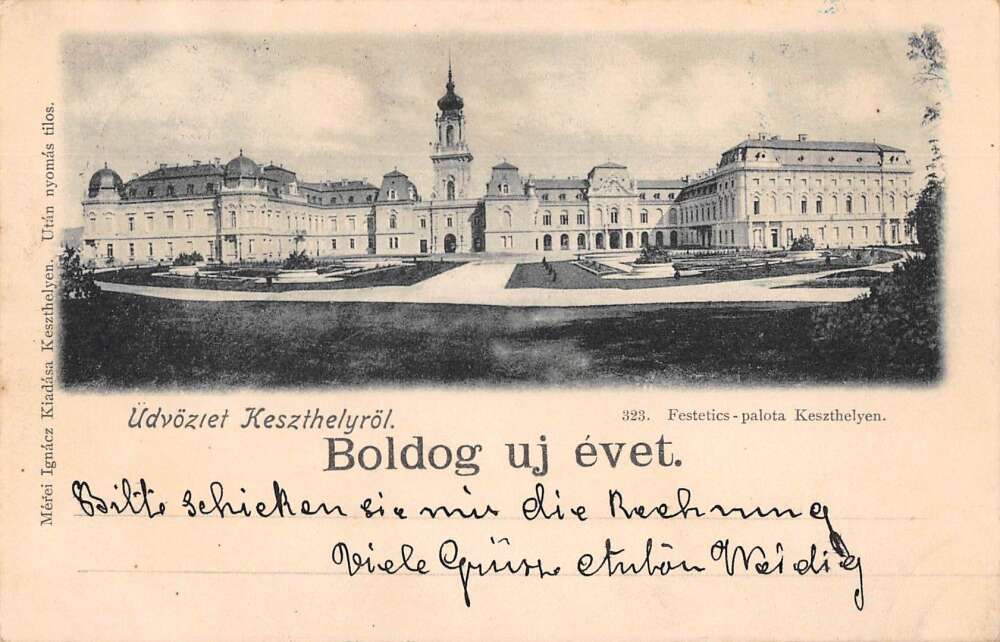 Mérei Ignácz Kiadása Keszthelyen. Után nyomás tilos.
Üdvözlet Keszthelyről.
323. Festetics-palota Keszthelyen.
Boldog uj évet.
Bitte schicken sie mir die Rechnung
Viele Grüsse Anton Weidig